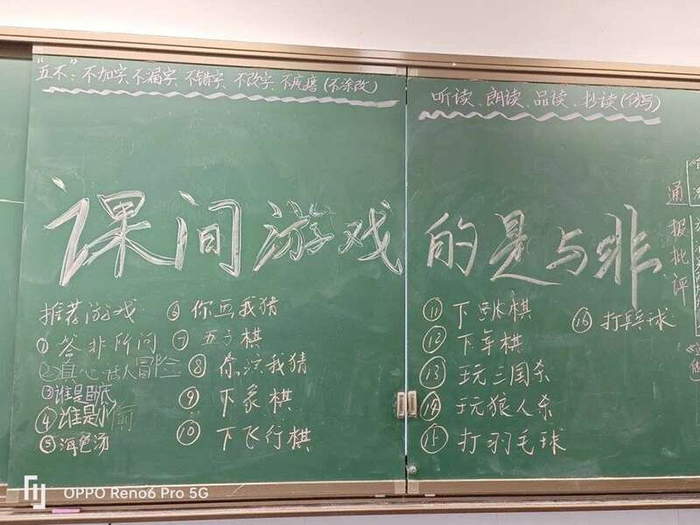 "五不"：不加字、不漏字、不错字、不改字、不疙瘩(不涂改)
听读、朗读、品读、抄读(仿写)
课间游戏的是与非
通报批评
推荐游戏
①答非所问
②真心话大冒险
③谁是卧底
④谁是小偷
⑤海龟汤
⑥你画我猜
⑦五子棋
⑧你演我猜
⑨下象棋
⑩下飞行棋
⑪下跳棋
⑫下军棋
⑬玩三国杀
⑭玩狼人杀
⑮打羽毛球
⑯打乒乓球
OPPO Reno6 Pro 5G